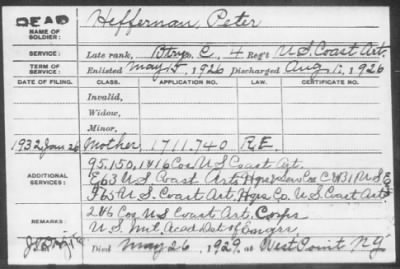 DEAD
NAME OF SOLDIER: Heffernan, Peter
SERVICE: Late rank, Btry. C, 4 Reg't U.S. Coast Art.
TERM OF SERVICE: Enlisted May 15, 1926 Discharged Aug 1, 1926
DATE OF FILING. CLASS. APPLICATION NO. LAW. CERTIFICATE NO.
Invalid,
Widow,
Minor,
1932 Jan 26 Mother, 1711.740 R.E.
ADDITIONAL SERVICES: 95.150.1416 Cos U.S Coast Art.
E 63 U.S Coast Arty Hqrs
F 65 U.S. Coast Art. Hqrs Co. U.S Coast Art.
REMARKS: 246 Co U S Coast Art. Corps
U.S. Mil. Acad. Det of Engrs
Died May 26, 1929, at West Point NY